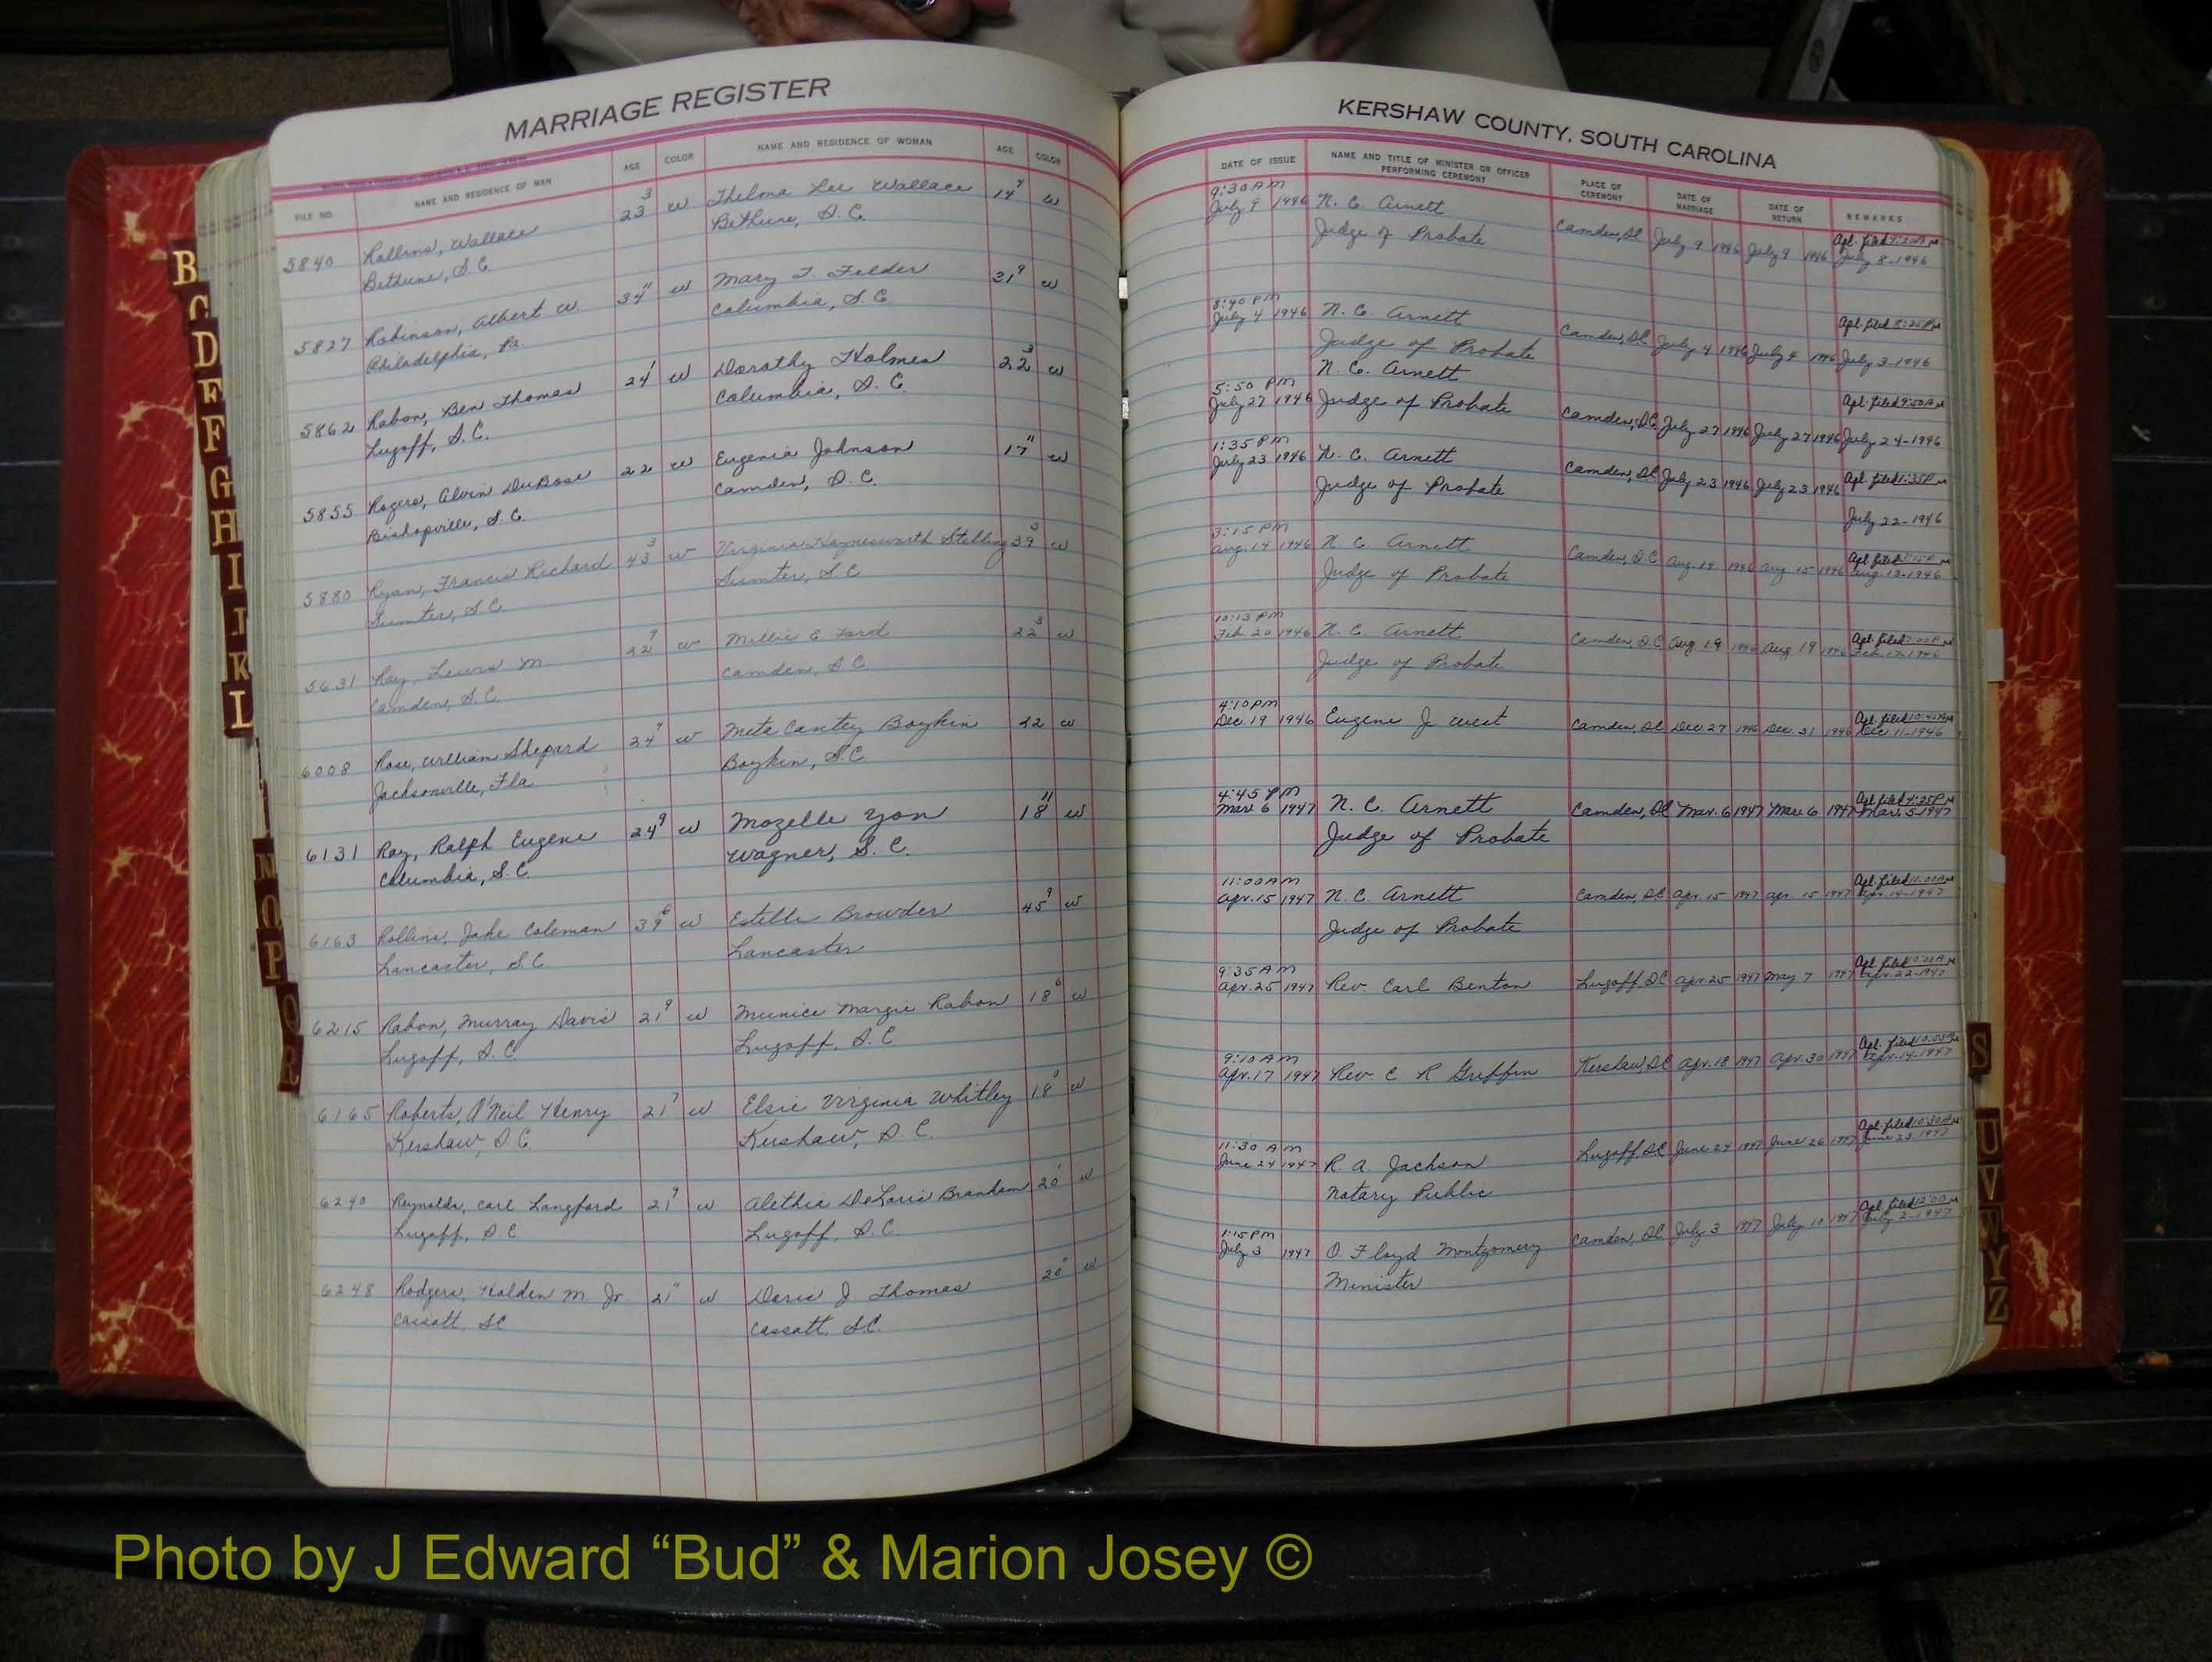 MARRIAGE REGISTER
FILE NO. NAME AND RESIDENCE OF MAN AGE COLOR NAME AND RESIDENCE OF WOMAN AGE COLOR
5840 Rollins, Wallace 23 3 w Thelma Lee Wallace 14 w
Bethune, S.C. Bethune, S.C.
5827 Robinson, Albert W. 34 11 w Mary T. Felder 31 9 w
Philadelphia, Pa. Columbia, S.C.
5862 Rabon, Ben Thomas 24 1 w Dorothy Holmes 22 3 w
Lugoff, S.C. Columbia, S.C.
5855 Rogers, Alvin DuBose 22 w Eugenia Johnson 17 11 w
Bishopville, S.C. Camden, S.C.
5880 Ryan, Francis Richard 43 3 w Virginia Haynesworth Stelling 39 w
Sumter, S.C. Sumter, S.C.
5631 Ray, Lewis M. 22 9 w Millie E Ford 22 3 w
Camden, S.C. Camden, S.C.
6008 Rose, William Shepard 24 w Meta Cantey Boykin 22 w
Jacksonville, Fla. Boykin, S.C.
6131 Ray, Ralph Eugene 24 9 w Mozelle Yon 18 11 w
Columbia, S.C. Wagner, S.C.
6163 Rollins, Jake Coleman 39 6 w Estelle Browder 45 9 w
Lancaster, S.C. Lancaster
6215 Rabon, Murray Davis 21 9 w Munice Margie Rabon 18 6 w
Lugoff, S.C. Lugoff, S.C.
6165 Roberts, O'Neil Henry 21 7 w Elsie Virginia Whitley 18 w
Kershaw, S.C. Kershaw, S.C.
6240 Reynolds, Carl Langford 21 9 w Alethia DeLoris Branham 20 w
Lugoff, S.C. Lugoff, S.C.
6248 Rodgers, Holden M. Jr 21 11 w Doris J. Thomas 20 w
Cassatt, SC Cassatt, S.C.
KERSHAW COUNTY, SOUTH CAROLINA
DATE OF ISSUE NAME AND TITLE OF MINISTER OR OFFICER PERFORMING CEREMONY PLACE OF CEREMONY DATE OF MARRIAGE DATE OF RETURN REMARKS
9:30 AM
July 9 1946 N. C. Arnett Camden, SC July 9 1946 July 9 1946 Apl. filed
Judge of Probate July 8-1946
8:40 PM
July 4 1946 N. C. Arnett Camden, SC July 4 1946 July 4 1946 Apl. filed 8:25 PM
Judge of Probate July 3-1946
5:50 PM N. C. Arnett
July 27 1946 Judge of Probate Camden, SC July 27 1946 July 27 1946 Apl. filed 9:50 AM
July 24-1946
1:35 PM
July 23 1946 N. C. Arnett Camden, SC July 23 1946 July 23 1946 Apl. filed 1:35 PM
Judge of Probate July 22-1946
3:15 PM
Aug. 14 1946 N. C. Arnett Camden, S.C. Aug. 14 1946 Aug. 15 1946 Apl. filed
Judge of Probate Aug. 13-1946
10:13 PM
Feb 20 1946 N. C. Arnett Camden, S.C. Aug 19 1946 Aug 19 1946 Apl. filed
Judge of Probate Feb. 17-1946
4:10 PM
Dec. 19 1946 Eugene J West Camden, SC Dec. 27 1946 Dec. 31 1946 Apl. filed 10:40 AM
Dec. 11-1946
4:45 PM
Mar. 6 1947 N. C. Arnett Camden, SC Mar. 6 1947 Mar. 6 1947 Apl. filed 4:35 PM
Judge of Probate Mar. 5-1947
11:00 AM
Apr. 15 1947 N. C. Arnett Camden, SC Apr. 15 1947 Apr. 15 1947 Apl. filed 11:00 AM
Judge of Probate Apr. 14-1947
9:35 AM
Apr. 25 1947 Rev. Carl Benton Lugoff, SC Apr. 25 1947 May 7 1947 Apl. filed 10:00 AM
Apr. 22-1947
9:10 AM
Apr. 17 1947 Rev. C R Griffin Kershaw, SC Apr. 18 1947 Apr. 30 1947 Apl. filed
Apr. 14-1947
11:30 AM
June 24 1947 R. A. Jackson Lugoff, SC June 24 1947 June 26 1947 Apl. filed 10:30 AM
Notary Public June 23-1947
1:15 PM
July 3 1947 O. Floyd Montgomery Camden, SC July 3 1947 July 1947 Apl. filed 12:00 M
Minister July 2-1947
B
C
D
E
F
G
H
I
J
K
L
N
O
P
Q
R
S
U
V
W
Y
Z
Photo by J Edward “Bud” & Marion Josey ©